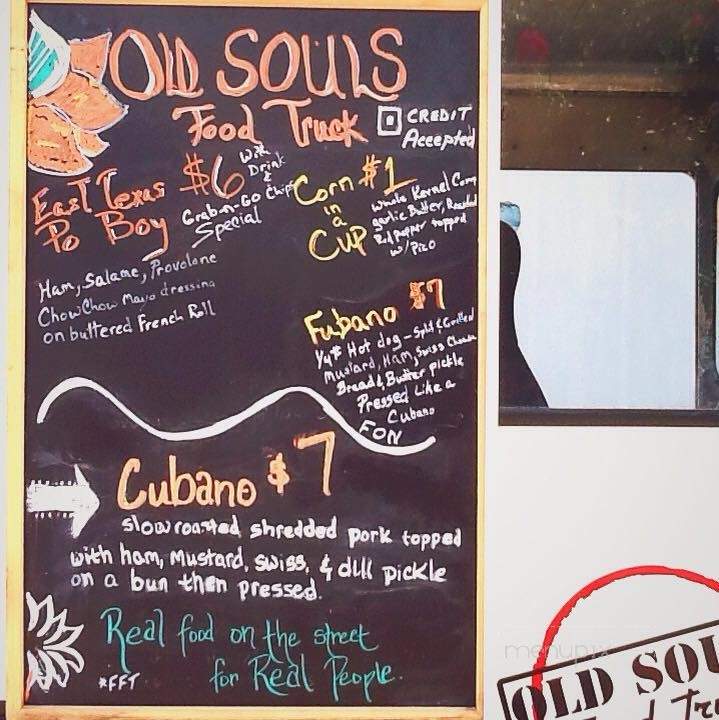 OLD SOULS
Food Truck
CREDIT
Accepted
East Texas
Po Boy
$6
with
Drink
&
Chips
Grab-n-Go
Special
Ham, Salame, Provolone
ChowChow Mayo dressing
on buttered French Roll
Corn
in
a
CUP
$1
whole Kernel Corn
garlic Butter, Roasted
Red pepper topped
w/ Pico
Fubano $7
1/4# Hot dog - Split & Grilled
Mustard, Ham, Swiss Cheese
Bread & Butter pickle
Pressed Like a
Cubano
FON
Cubano $7
slow roasted shredded pork topped
with ham, mustard, swiss, & dill pickle
on a bun then pressed.
Real food on the street
for Real People.
*FFT
menupix
OLD SOU
d Tr